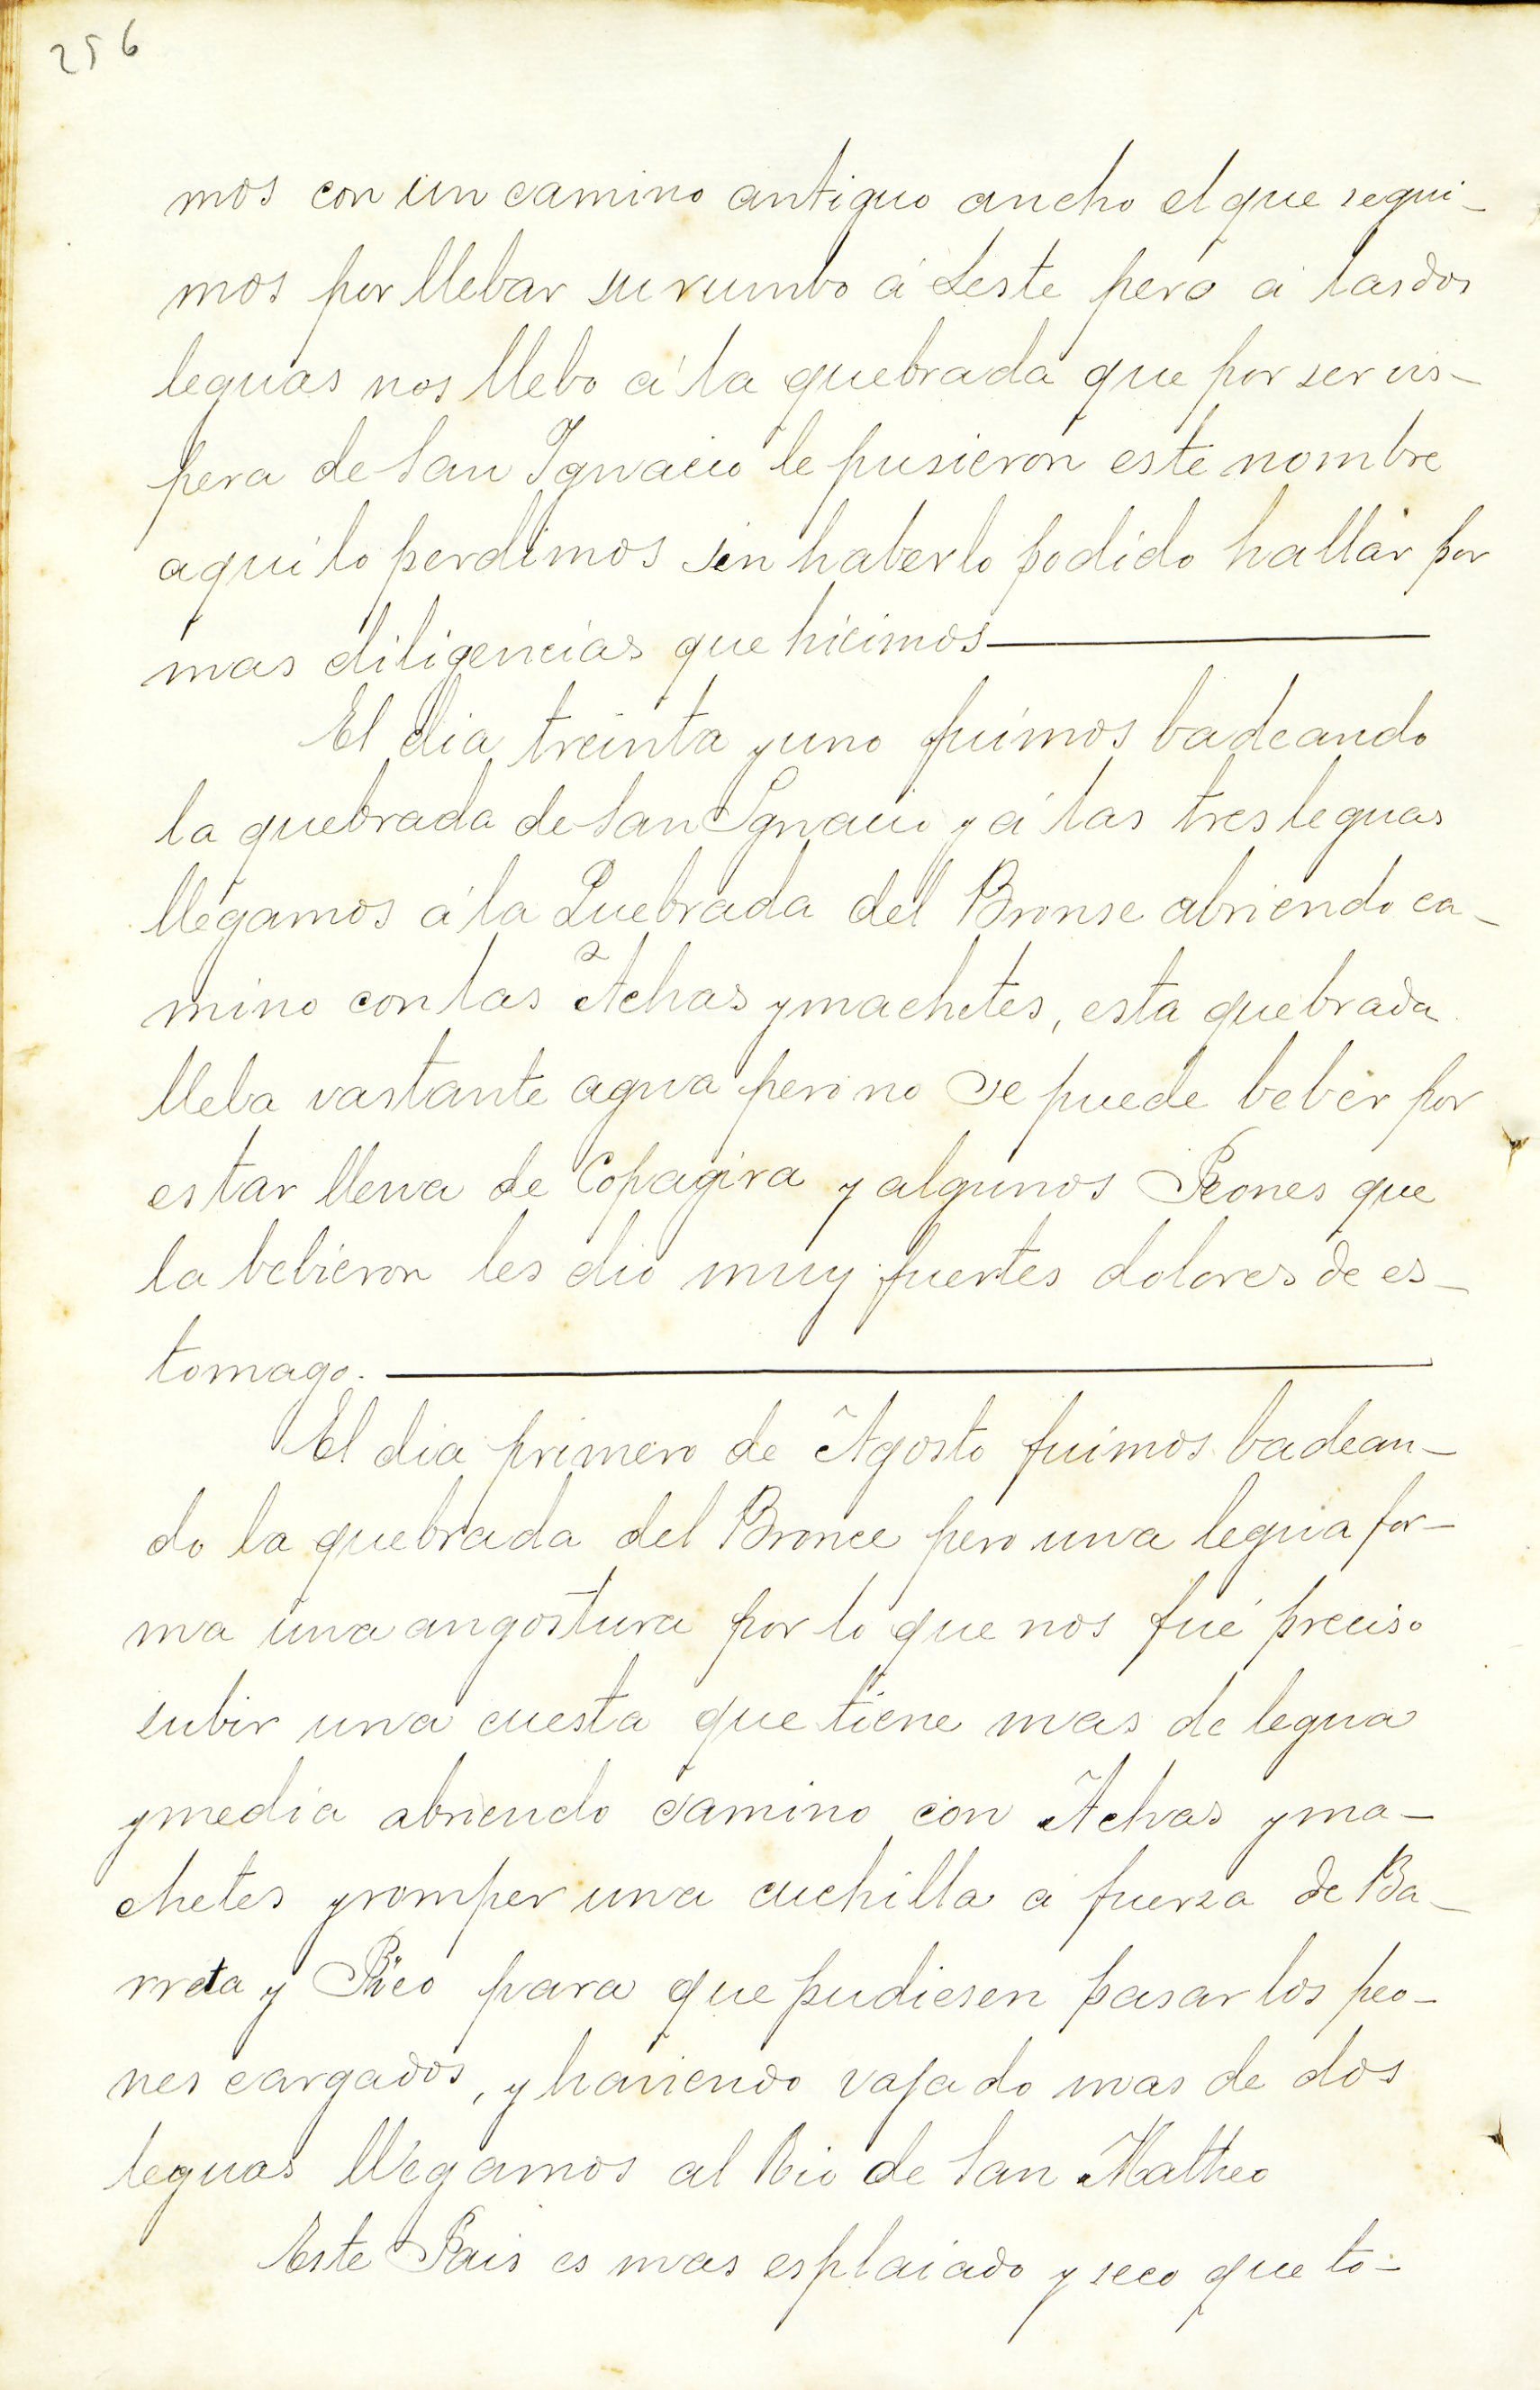 256
mos con un camino antiguo ancho el que segui-
mos por llebar su rumbo á Leste pero á las dos
leguas nos llebo á la quebrada que por ser vis-
pera de San Ignacio le pusieron este nombre
aqui lo perdimos sin haberlo podido hallar por
mas diligencias que hicimos
El dia treinta y uno fuimos badeando
la quebrada de San Ignacio y á las tres leguas
llegamos á la Quebrada del Bronse abriendo ca-
mino con las Achas y machetes, esta quebrada
lleba vastante agua pero no se puede beber por
estar llena de Copagira y algunos Peones que
la bebieron les dio muy fuertes dolores de es-
tomago.
El dia primero de Agosto fuimos badean-
do la quebrada del Bronce pero una legua for-
ma una angostura por lo que nos fué preciso
subir una cuesta que tiene mas de legua
y media abriendo camino con Achas y ma-
chetes y romper una cuchilla á fuerza de Ba-
rreta y Pico para que pudiesen pasar los peo-
nes cargados, y haviendo vajado mas de dos
leguas llegamos al Rio de San Matheo
Este Pais es mas esplaiado y seco que to-